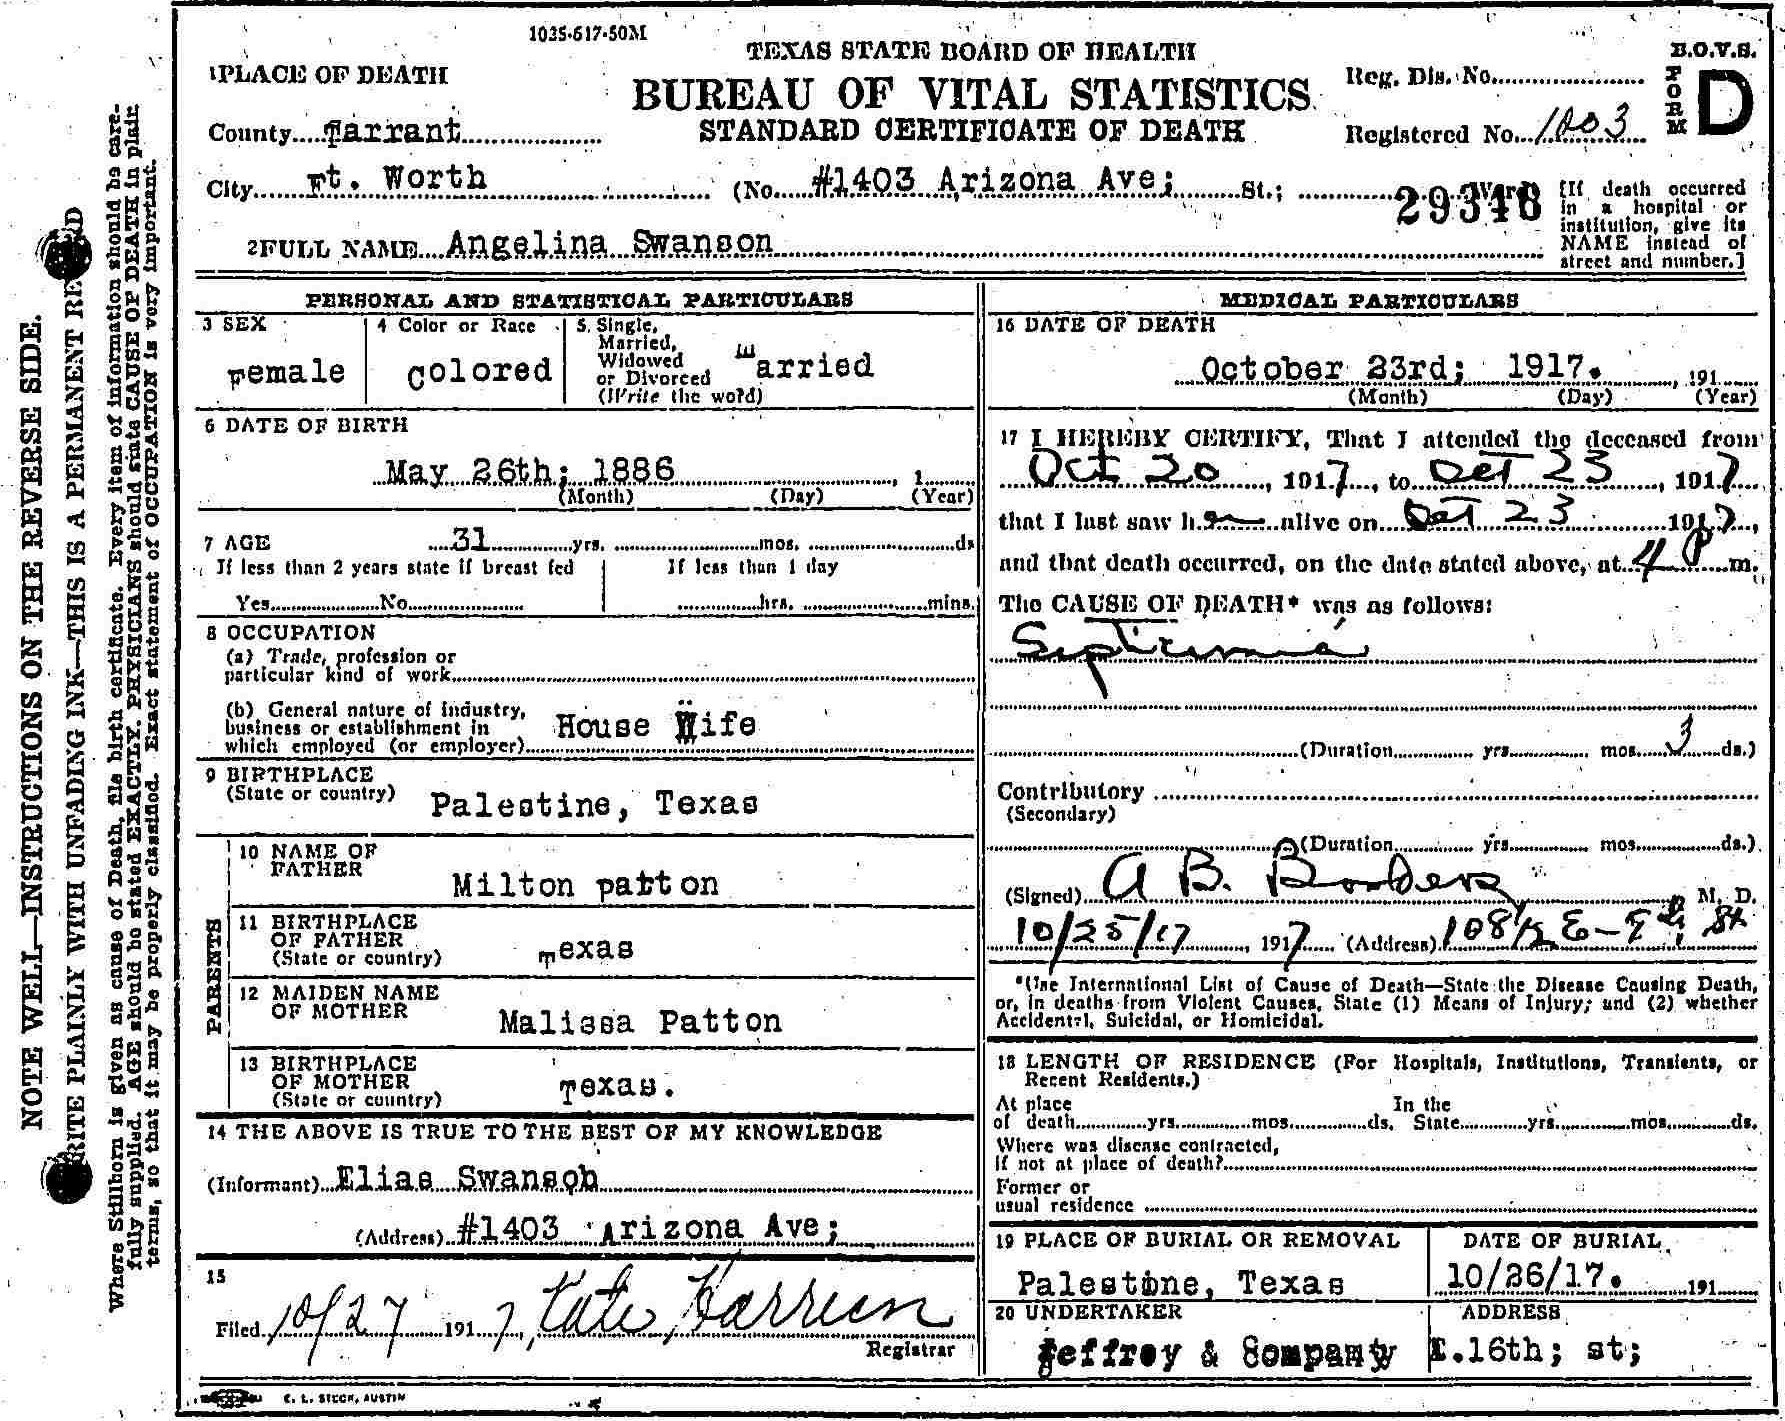 1035-617-50M
TEXAS STATE BOARD OF HEALTH
B.O.V.S.
FORM D
1 PLACE OF DEATH
BUREAU OF VITAL STATISTICS
Reg. Dis. No.
County Tarrant
STANDARD CERTIFICATE OF DEATH
Registered No. 1003
City Ft. Worth (No. #1403 Arizona Ave; St.; Ward
29346
[If death occurred in a hospital or institution, give its NAME instead of street and number.]
2 FULL NAME Angelina Swanson
PERSONAL AND STATISTICAL PARTICULARS
3 SEX
Female
4 Color or Race
Colored
5. Single, Married, Widowed or Divorced (Write the word)
Married
6 DATE OF BIRTH
May 26th; 1886 , 1
(Month) (Day) (Year)
7 AGE 31 yrs. mos. ds
If less than 2 years state if breast fed
Yes No
If less than 1 day
hrs. mins.
8 OCCUPATION
(a) Trade, profession or
particular kind of work
(b) General nature of industry,
business or establishment in
which employed (or employer)
House Wife
9 BIRTHPLACE
(State or country) Palestine, Texas
PARENTS
10 NAME OF
FATHER
Milton Patton
11 BIRTHPLACE
OF FATHER
(State or country) Texas
12 MAIDEN NAME
OF MOTHER
Malissa Patton
13 BIRTHPLACE
OF MOTHER
(State or country) Texas.
14 THE ABOVE IS TRUE TO THE BEST OF MY KNOWLEDGE
(Informant) Elias Swanson
(Address) #1403 Arizona Ave;
15
Filed 10/27 1917, Kate Harrison
Registrar
E. L. STECK, AUSTIN
MEDICAL PARTICULARS
16 DATE OF DEATH
October 23rd; 1917. , 191
(Month) (Day) (Year)
17 I HEREBY CERTIFY, That I attended the deceased from
Oct 20, 1917, to Oct 23, 1917
that I last saw her alive on Oct 23 1917,
and that death occurred, on the date stated above, at 4 P m.
The CAUSE OF DEATH* was as follows:
Septicemia
(Duration yrs. mos. 3 ds.)
Contributory
(Secondary)
(Duration yrs. mos. ds.)
(Signed) A B. Borders M. D.
10/25/17, 1917 (Address) 108½ E-9th St
*(Use International List of Cause of Death—State the Disease Causing Death,
or, in deaths from Violent Causes, State (1) Means of Injury; and (2) whether
Accidental, Suicidal, or Homicidal.
18 LENGTH OF RESIDENCE (For Hospitals, Institutions, Transients, or
Recent Residents.)
At place In the
of death yrs. mos. ds. State yrs. mos. ds.
Where was disease contracted,
if not at place of death?
Former or
usual residence
19 PLACE OF BURIAL OR REMOVAL
Palestine, Texas
DATE OF BURIAL
10/26/17. 191
20 UNDERTAKER
Jeffrey & Company
ADDRESS
E.16th; st;
NOTE WELL—INSTRUCTIONS ON THE REVERSE SIDE.
WRITE PLAINLY WITH UNFADING INK—THIS IS A PERMANENT RECORD
Where Stillborn is given as cause of Death, file birth certificate. Every item of information should be care-
fully supplied. AGE should be stated EXACTLY. PHYSICIANS should state CAUSE OF DEATH in plain
terms, so that it may be properly classified. Exact statement of OCCUPATION is very important.